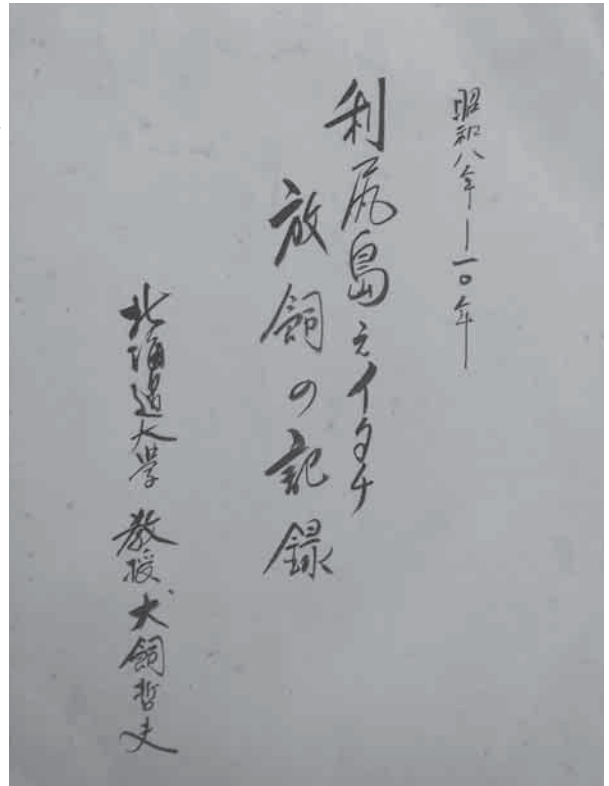 昭和八年―一〇年
利尻島えイタチ
放飼の記録
北海道大学 教授 犬飼哲夫